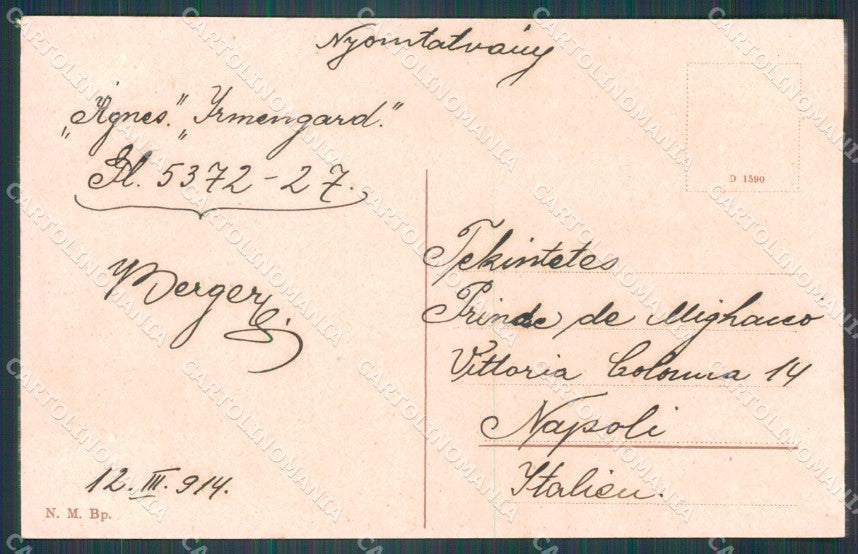 Nyomtatvány
„Ágnes.” „Irmengard.”
Pl. 5372-27.
Berger
12. III. 914.
N. M. Bp.
D 1590
Tekintetes
Prince de Mighano
Vittoria Colonna 14
Napoli
Italien.
CARTOLINOMANIA